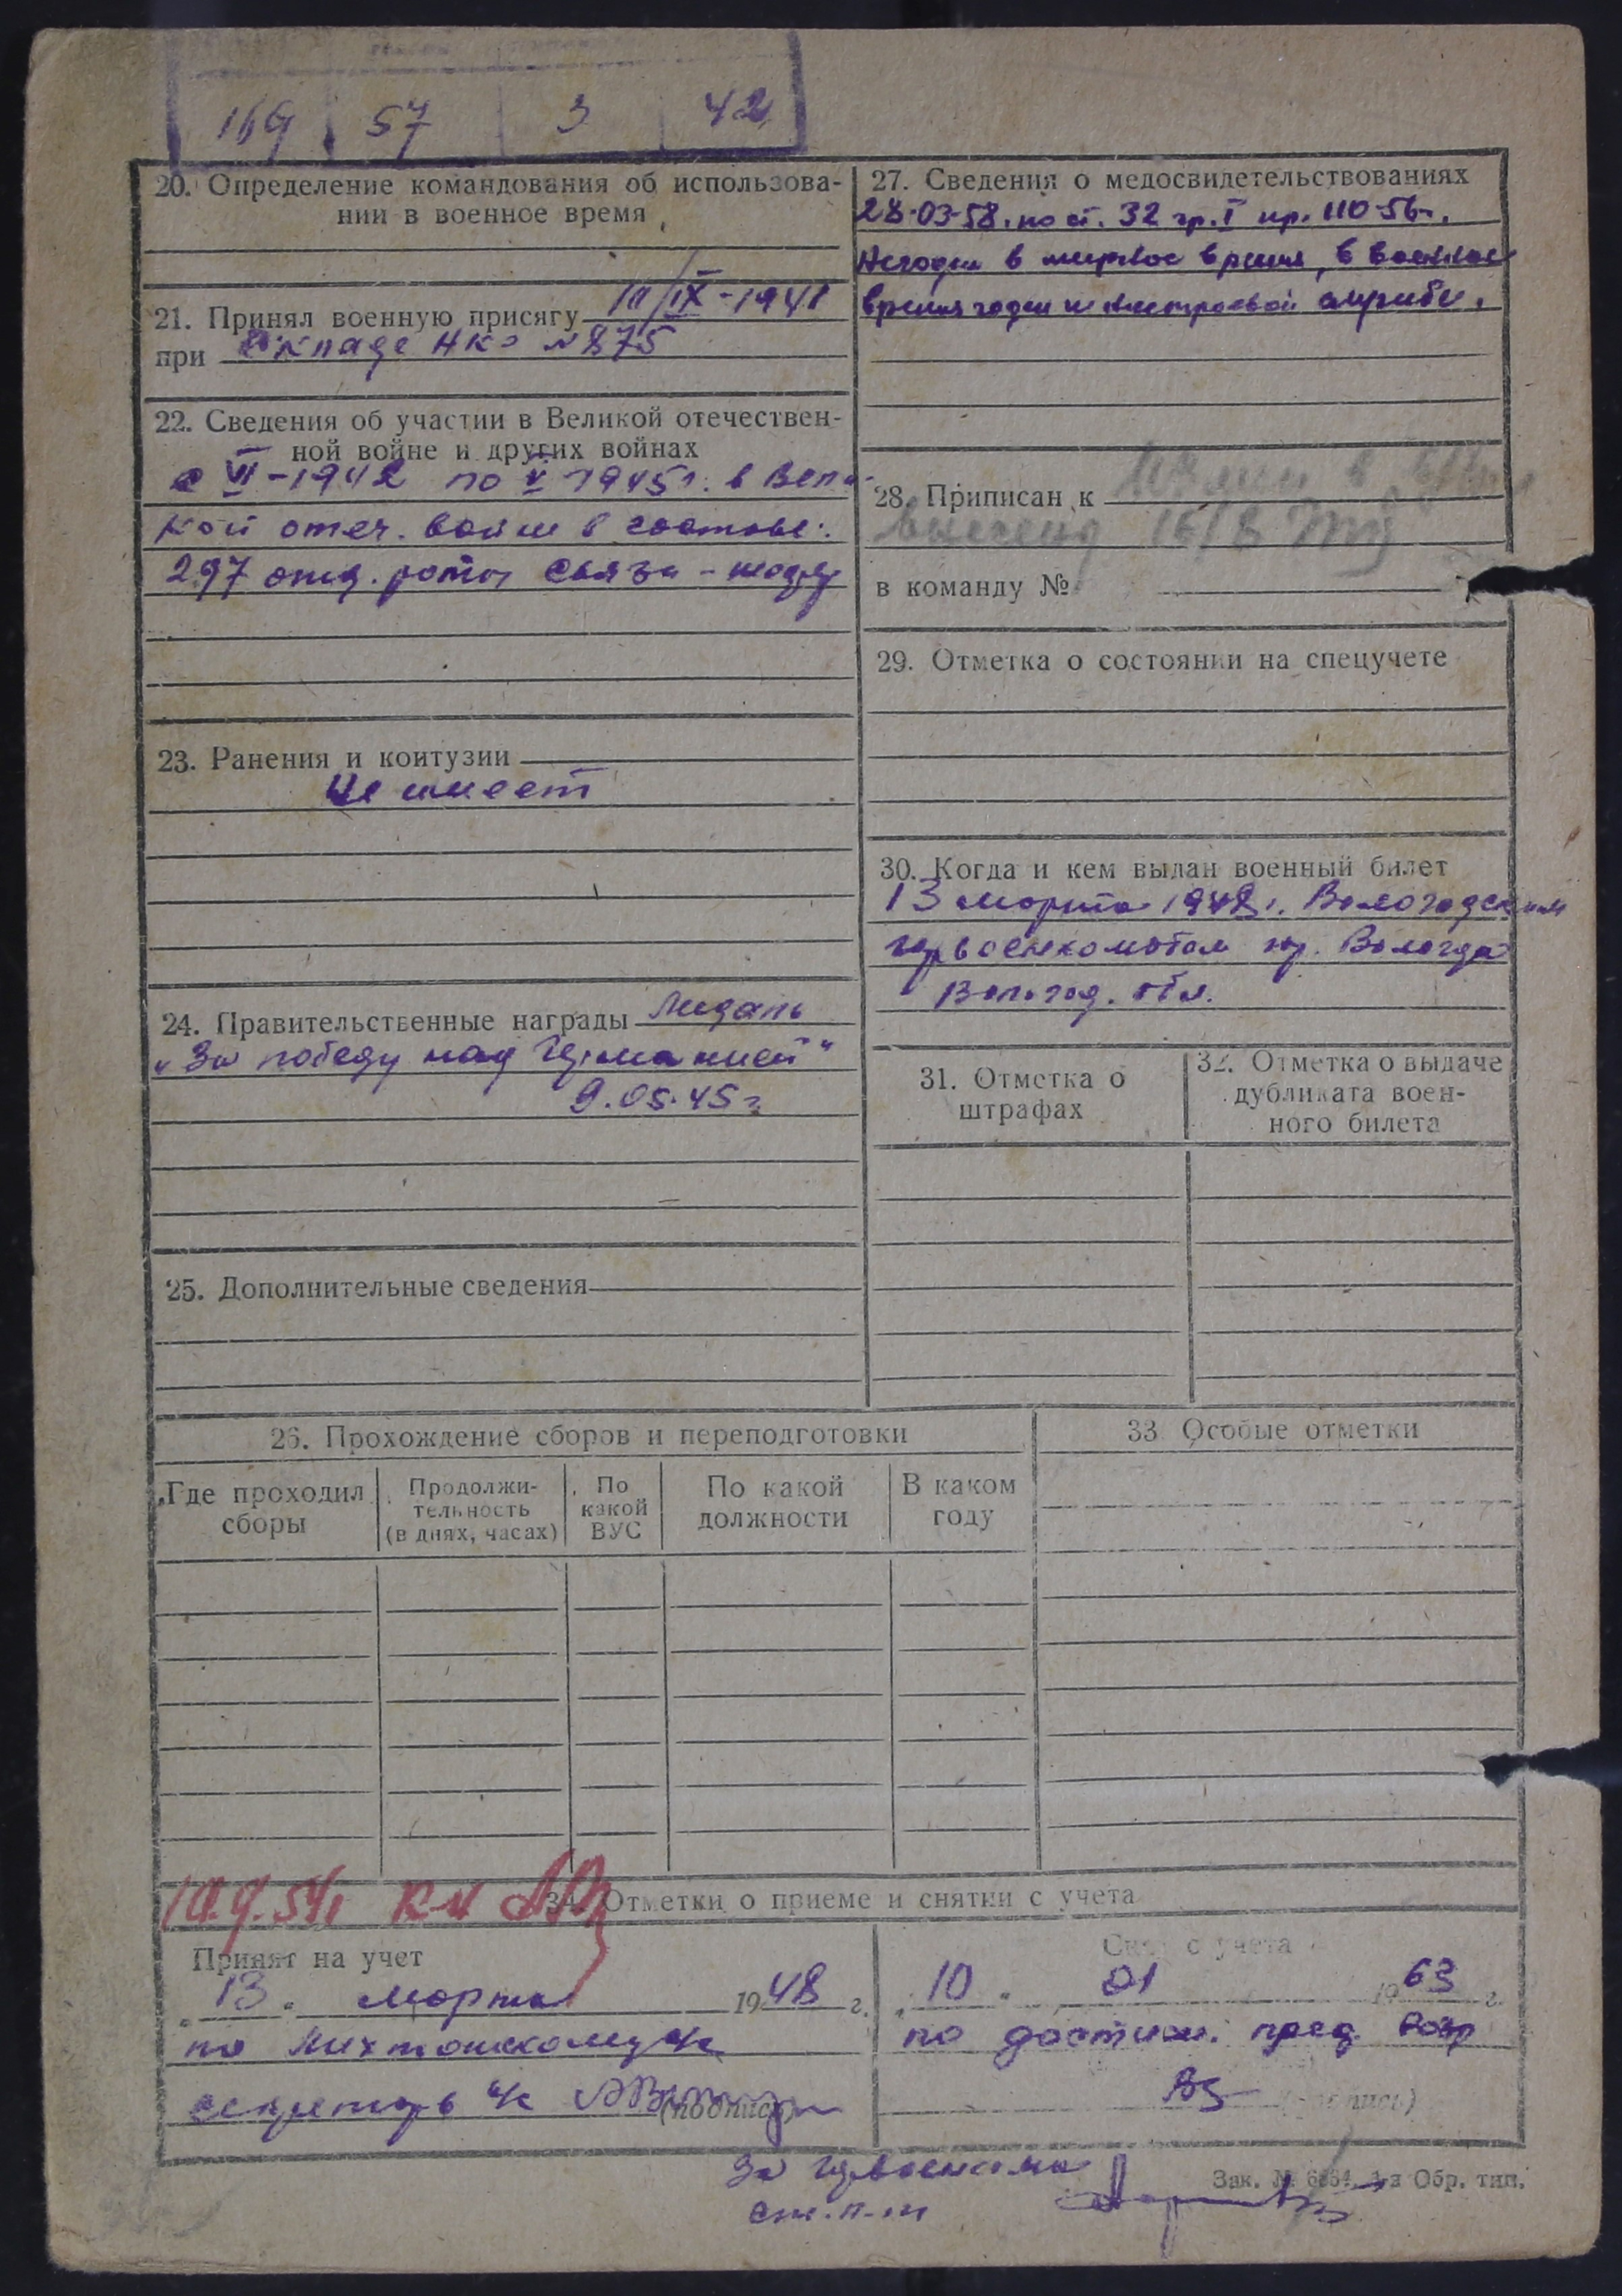 169 57 3 42
20. Определение командования об использова-
нии в военное время
21. Принял военную присягу 10/IX-1941
при складе НКО №875
22. Сведения об участии в Великой отечествен-
ной войне и других войнах
с VI-1942 по V 1945г. в Вели-
кой отеч. войне в составе:
297 отд. роты связи -
23. Ранения и контузии
Не имеет
24. Правительственные награды Медаль
„За победу над Германией“
9.05.45г.
25. Дополнительные сведения
27. Сведения о медосвидетельствованиях
28-03-58. по ст. 32 гр. I пр. 110-56г.
Негоден в мирное время, в военное
время годен к нестроевой службе.
28. Приписан к
16/8
в команду №
29. Отметка о состоянии на спецучете
30. Когда и кем выдан военный билет
13 марта 1948г. Вологодским
горвоенкоматом гор. Вологда
Волог. обл.
31. Отметка о
штрафах
32. Отметка о выдаче
дубликата воен-
ного билета
26. Прохождение сборов и переподготовки
Где проходил
сборы
Продолжи-
тельность
(в днях, часах)
По
какой
ВУС
По какой
должности
В каком
году
33. Особые отметки
34. Отметки о приеме и снятии с учета
Принят на учет
„13“ марта 1948 г.
по
секретарь
(подпись)
Снят с учета
„10“ 01 1963 г.
по достиж. пред. возр
(подпись)
За горвоенкома
Зак. № 1-я Обр. тип.